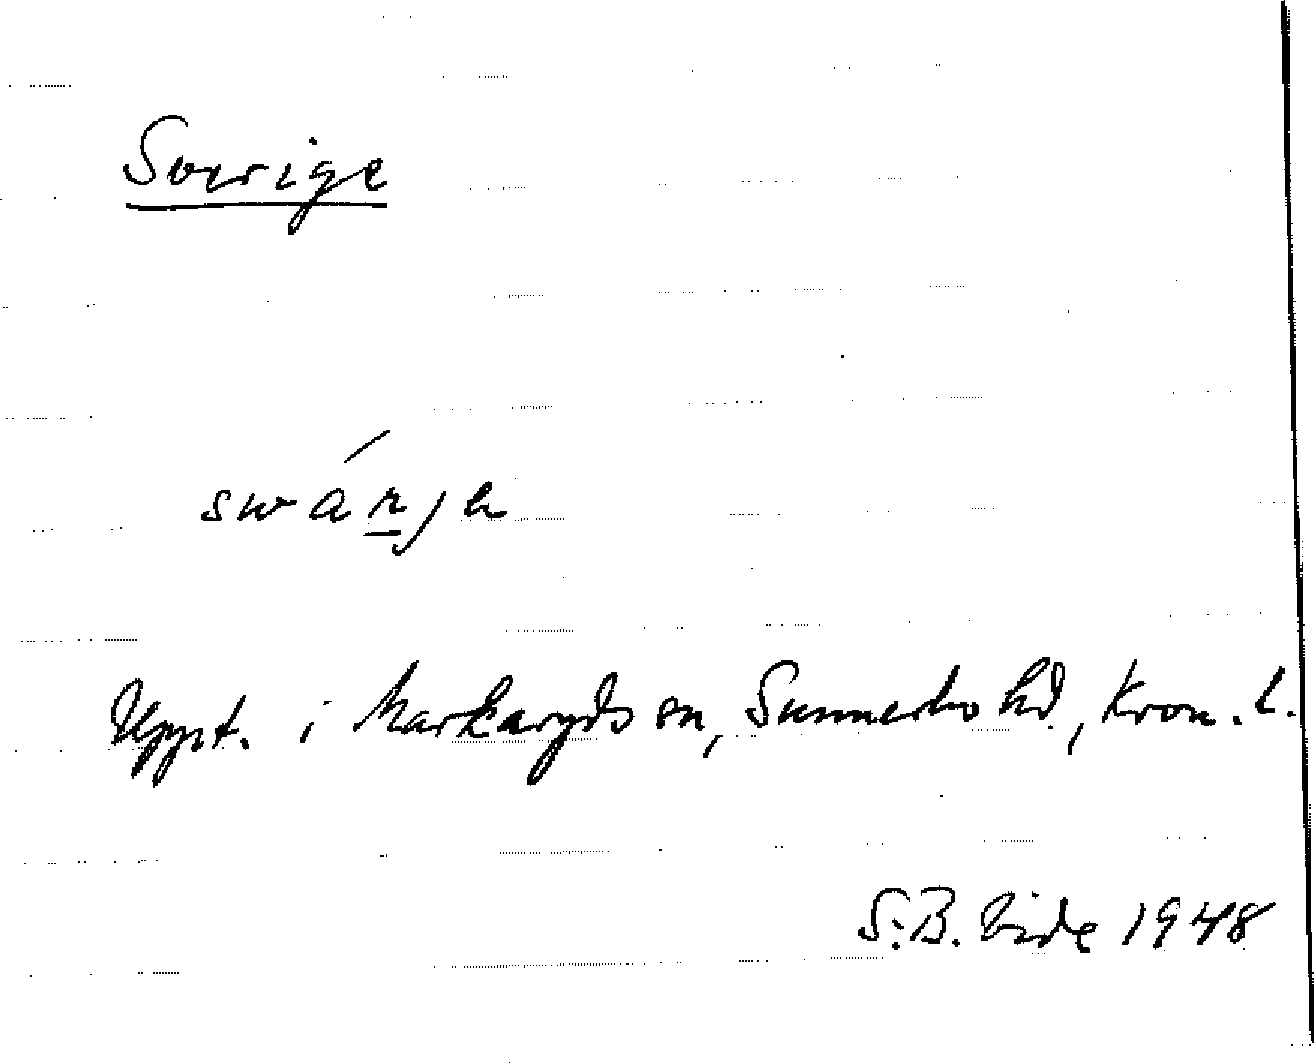 Sverige
swárja
Uppt. i Markaryds sn, Sunnerbo hd, Kron. l.
S:B. Vide 1948